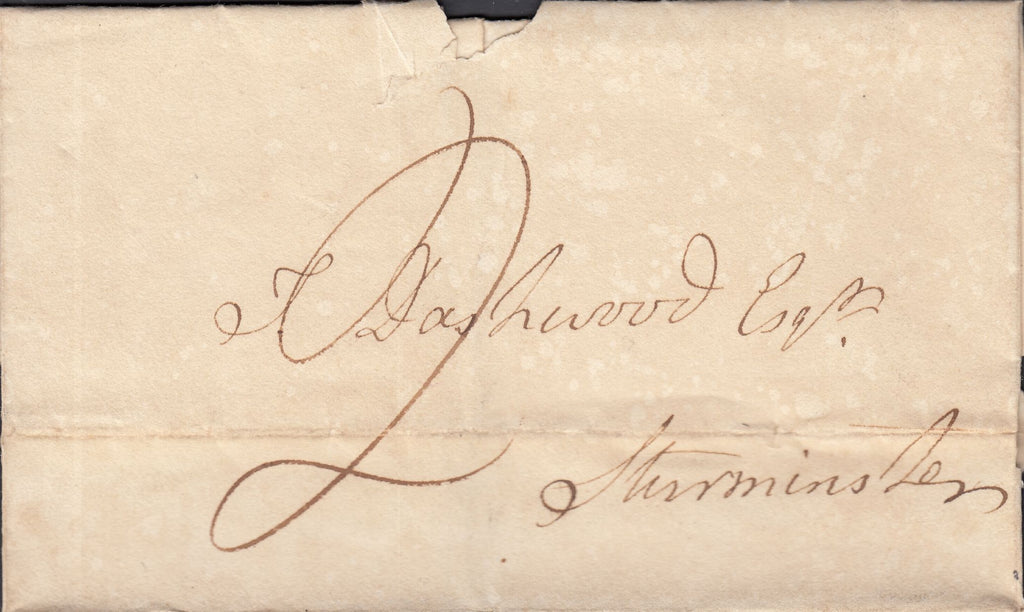 2
T Dashwood Esqr.
Sturminster